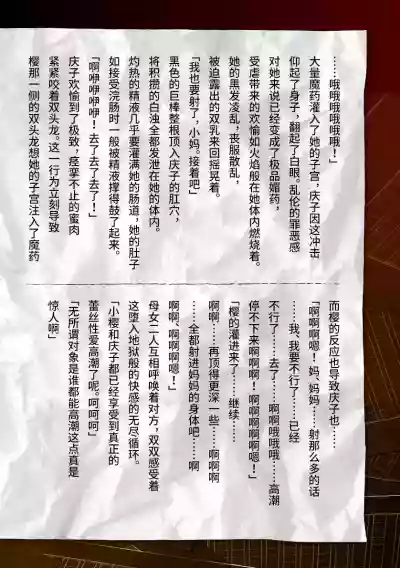 ……哦哦哦哦哦哦！」
大量魔药灌入了她的子宫，庆子因这冲击
仰起了身子，翻起了白眼。乱伦的罪恶感
对她来说已经变成了极品媚药，
受虐带来的欢愉如火焰般在她体内燃烧着。
她的黑发凌乱，丧服散乱，
被迫露出的双乳来回摇晃着。
「我也要射了，小妈。接着吧」
黑色的巨棒整根顶入庆子的肛穴，
将积攒的白浊全都发泄在她的体内。
灼热的精液几乎要灌满她的肠道，她的肚子
如接受浣肠时一般被精液撑得鼓了起来。
「啊咿咿咿咿！去了去了去了！」
庆子欢愉到了极致，痉挛不止的蜜肉
紧紧咬着双头龙。这一行为立刻导致
樱那一侧的双头龙想她的子宫注入了魔药
而樱的反应也导致庆子也……
「啊啊啊啊嗯！妈、妈妈……射那么多的话
……我、我要不行了……已经
不行了……去了……啊啊哦哦哦……高潮
停不下来啊啊啊！啊啊啊啊啊嗯！」
「樱的灌进来了……继续……
啊啊……再顶得更深一些……啊啊啊
……全都射进妈妈的身体吧……啊
啊啊、啊啊啊嗯！」
母女二人互相呼唤着对方，双双感受着
这堕入地狱般的快感的无尽循环。
「小樱和庆子都已经享受到真正的
蕾丝性爱高潮了呢。呵呵呵」
「无所谓对象是谁都能高潮这点真是
惊人啊」